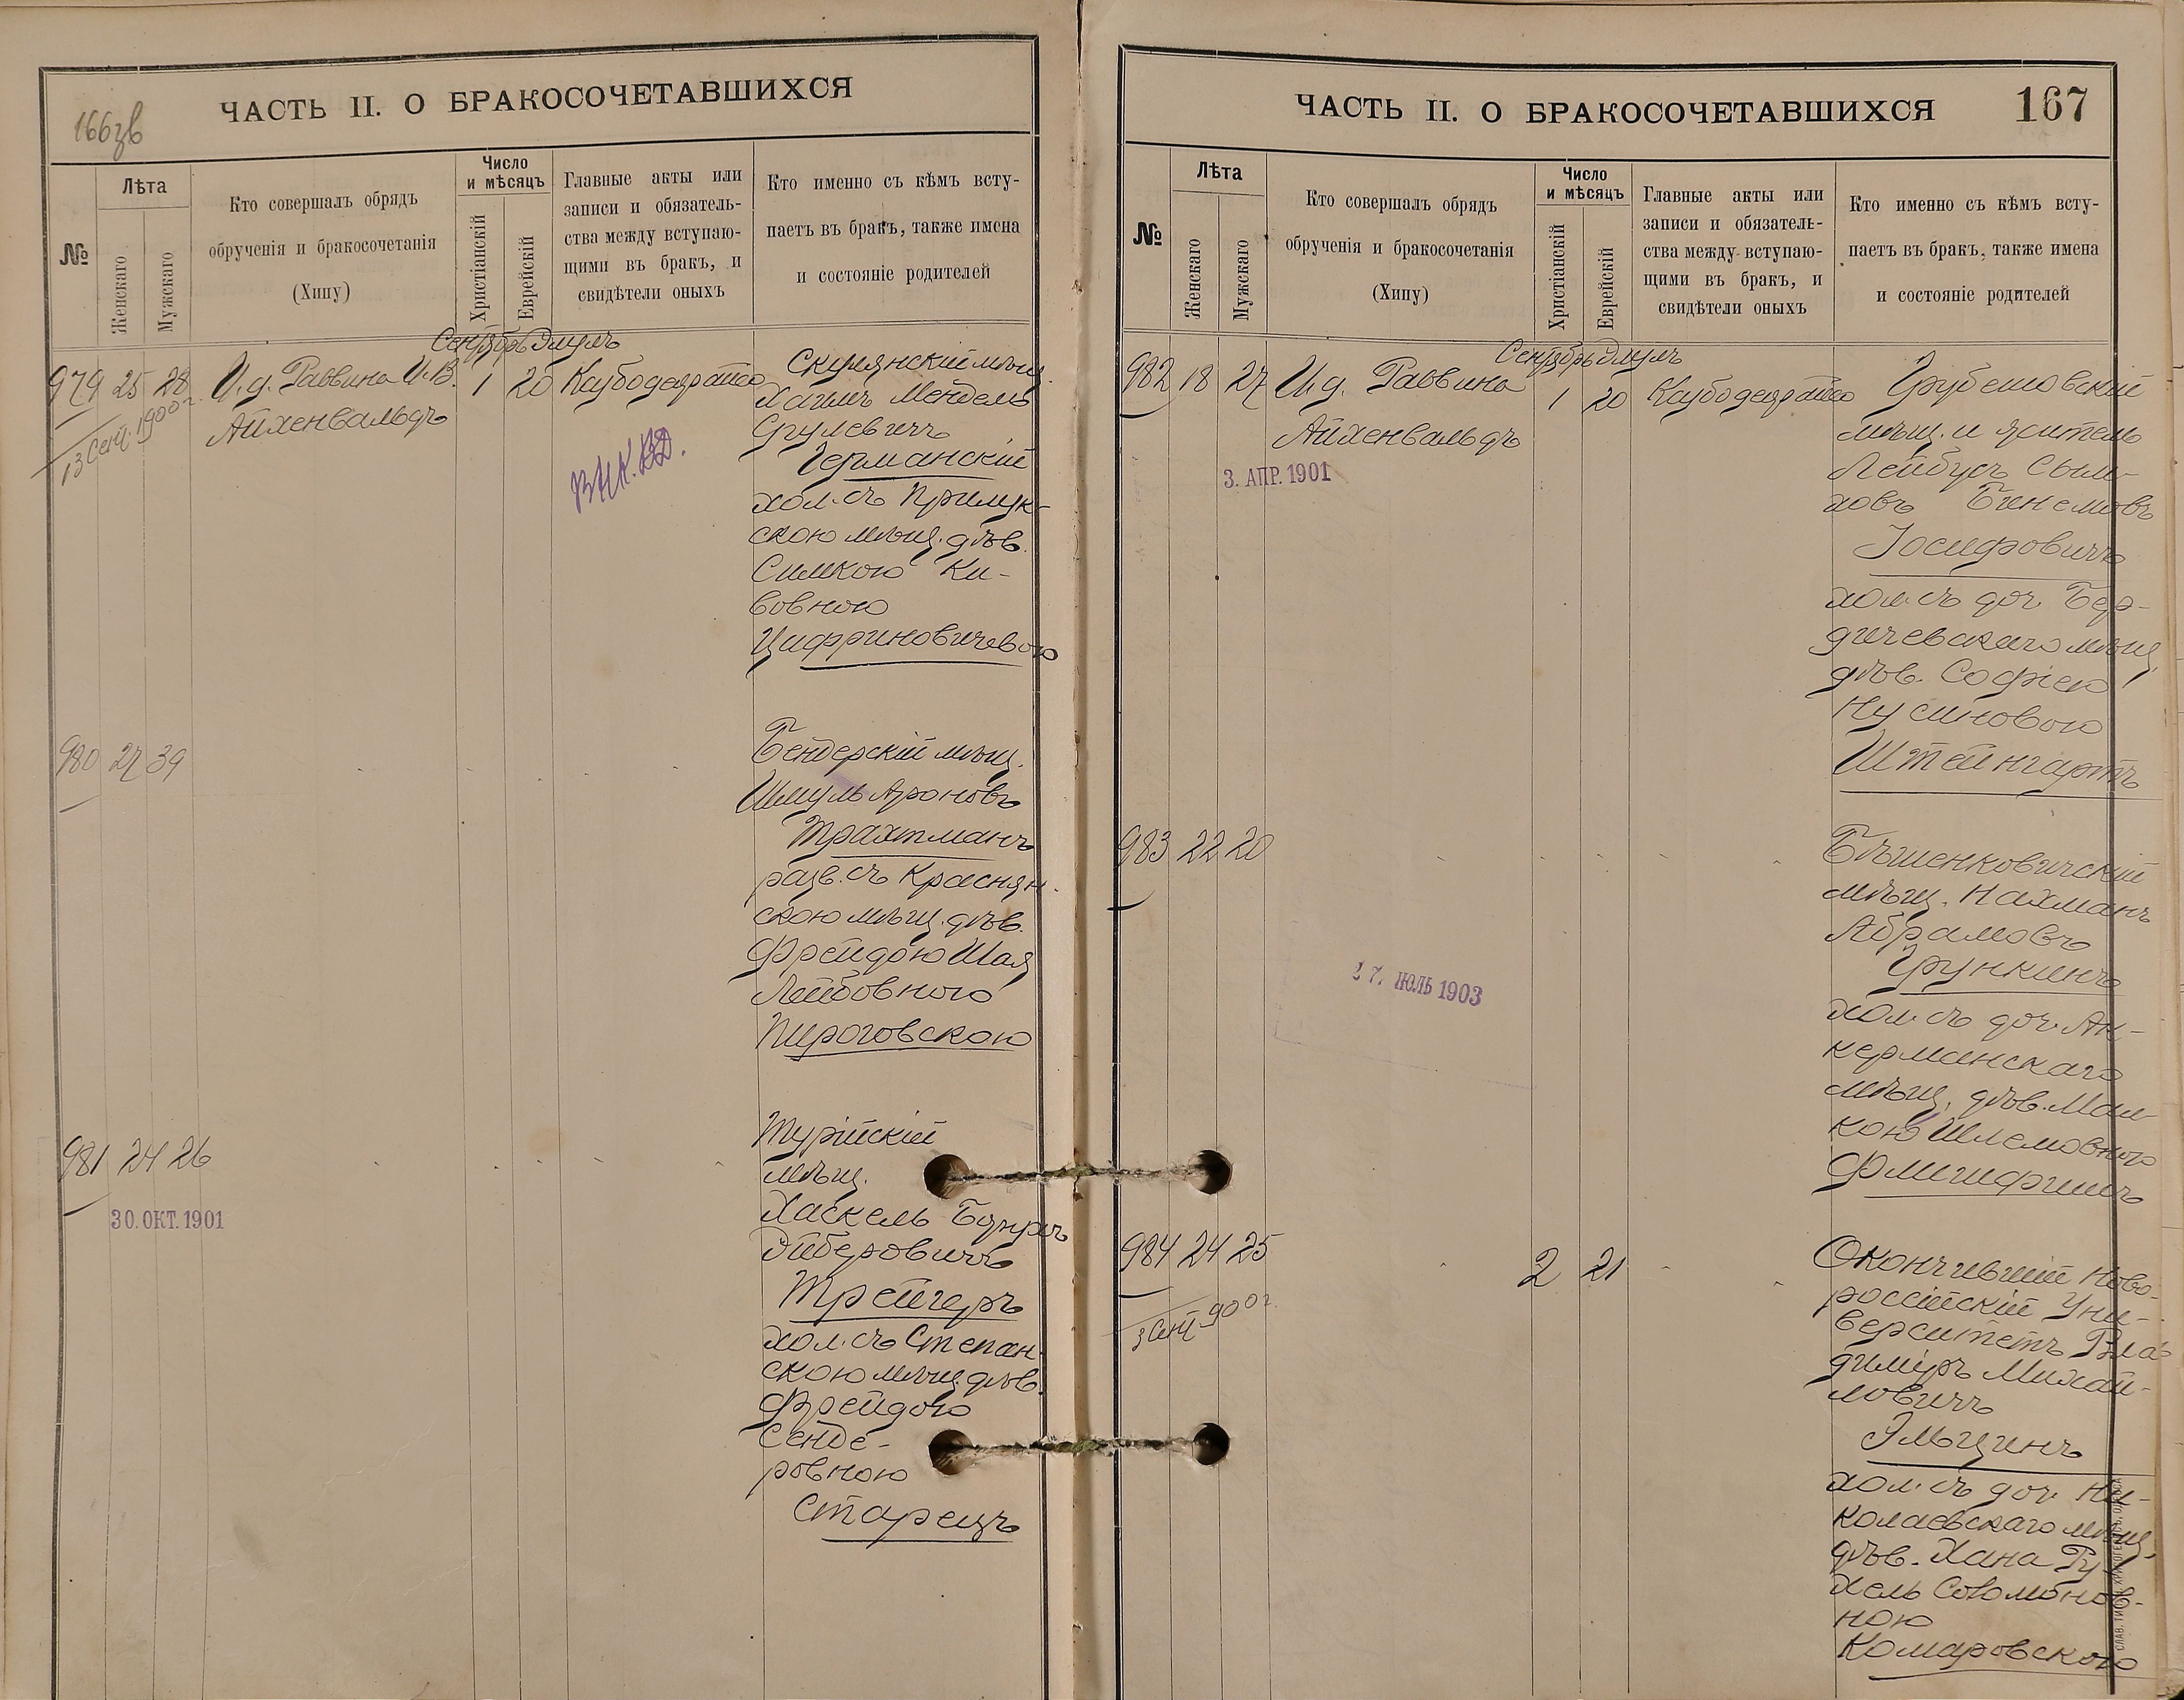 166 об
ЧАСТЬ II. О БРАКОСОЧЕТАВШИХСЯ
№
Лѣта
Женскаго
Мужскаго
Кто совершалъ обрядъ
обрученія и бракосочетанія
(Хипу)
Число
и мѣсяцъ
Христіанскій
Еврейскій
Главные акты или
записи и обязатель-
ства между вступаю-
щими въ бракъ, и
свидѣтели оныхъ
Кто именно съ кѣмъ всту-
паетъ въ бракъ, также имена
и состояніе родителей
Сентябрь Элулъ
979 25 28 И. д. Раввина И.В. 1 20
Айхенвальдъ
13 Сент. 1900 г.
Скулянскій мѣщ.
Хаимъ Мендель
Срулевичъ
Германскій
хол. съ Прилук-
скою мѣщ. дѣв.
Симкою Ки-
вовною
Цифриновичевою
980 27 39
Бендерскій мѣщ.
Шмуль Ароновъ
Трахтманъ
разв. съ Краснян-
скою мѣщ. дѣв.
Фрейдою Шая
Лейбовною
Пироговскою
981 24 26
30. ОКТ. 1901
Турійскій
мѣщ.
Хаскель
Трейгеръ
хол. съ Степан-
скою мѣщ. дѣв.
Фрейдою
Сенде-
ровною
Старецъ
ЧАСТЬ II. О БРАКОСОЧЕТАВШИХСЯ
167
№
Лѣта
Женскаго
Мужскаго
Кто совершалъ обрядъ
обрученія и бракосочетанія
(Хипу)
Число
и мѣсяцъ
Христіанскій
Еврейскій
Главные акты или
записи и обязатель-
ства между вступаю-
щими въ бракъ, и
свидѣтели оныхъ
Кто именно съ кѣмъ всту-
паетъ въ бракъ, также имена
и состояніе родителей
Сентябрь Элулъ
982 18 27 И. д. Раввина 1 20
Айхенвальдъ
3. АПР. 1901
Грубешовскій
мѣщ. и житель
Лейбусь Сым-
ховъ Бинемовъ
Іосифовичъ
хол. съ доч. Бер-
дичевскаго мѣщ.
дѣв. Софіею
Нусиновою
Штейнгартъ
983 22 20
27. ІЮЛЬ 1903
Бѣшенковичскій
мѣщ. Нахманъ
Абрамовъ
Грункинъ
хол. съ доч. Ак-
керманскаго
мѣщ. дѣв. Мал-
кою Шлемовною
984 24 25 2 21
3 Сент. 900 г.
Окончившій Ново-
россійскій Уни-
верситетъ Вла-
диміръ Михай-
ловичъ
Эльцинъ
хол. съ доч. Ни-
колаевскаго мѣщ.
дѣв. Хана Ру-
хель Соломонов-
ною
Комаровскою